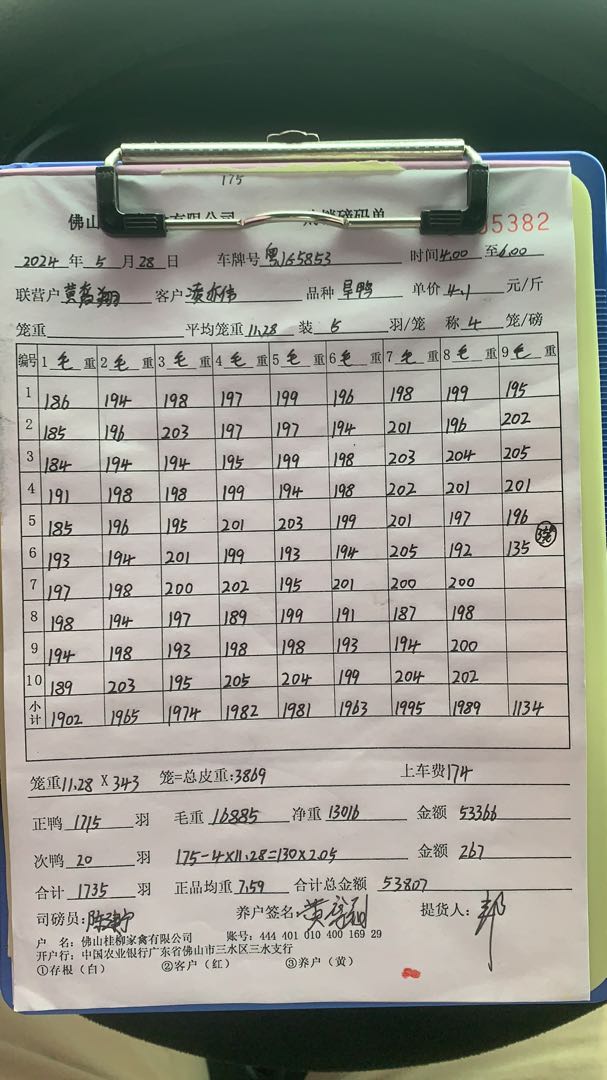 175
佛山 有限公司 磅码单 5382
2024 年 5 月 28 日 车牌号 时间 4.00 至 6.00
联营户 客户 品种 旱鸭 单价 4.1 元/斤
笼重 平均笼重 11.28 装 5 羽/笼 称 4 笼/磅
编号 1 毛 重 2 毛 重 3 毛 重 4 毛 重 5 毛 重 6 毛 重 7 毛 重 8 毛 重 9 毛 重
1 186 194 198 197 199 196 198 199 195
2 185 196 203 197 197 194 201 196 202
3 184 194 194 195 199 198 203 204 205
4 191 198 198 199 194 198 202 201 201
5 185 196 195 201 203 199 201 197 196
6 193 194 201 199 193 194 205 192 135
7 197 198 200 202 195 201 200 200
8 198 194 197 189 199 191 187 198
9 194 198 193 198 198 193 194 200
10 189 203 195 205 204 199 204 202
小计 1902 1965 1974 1982 1981 1963 1995 1989 1134
笼重 11.28 X 343 笼=总皮重: 3869 上车费 174
正鸭 1715 羽 毛重 16885 净重 13016 金额 53366
次鸭 20 羽 175-4×11.28=130×2.05 金额 267
合计 1735 羽 正品均重 7.59 合计总金额 53807
司磅员: 养户签名: 提货人:
户 名: 佛山桂柳家禽有限公司 账号: 444 401 010 400 169 29
开户行: 中国农业银行广东省佛山市三水区三水支行
①存根（白） ②客户（红） ③养户（黄）